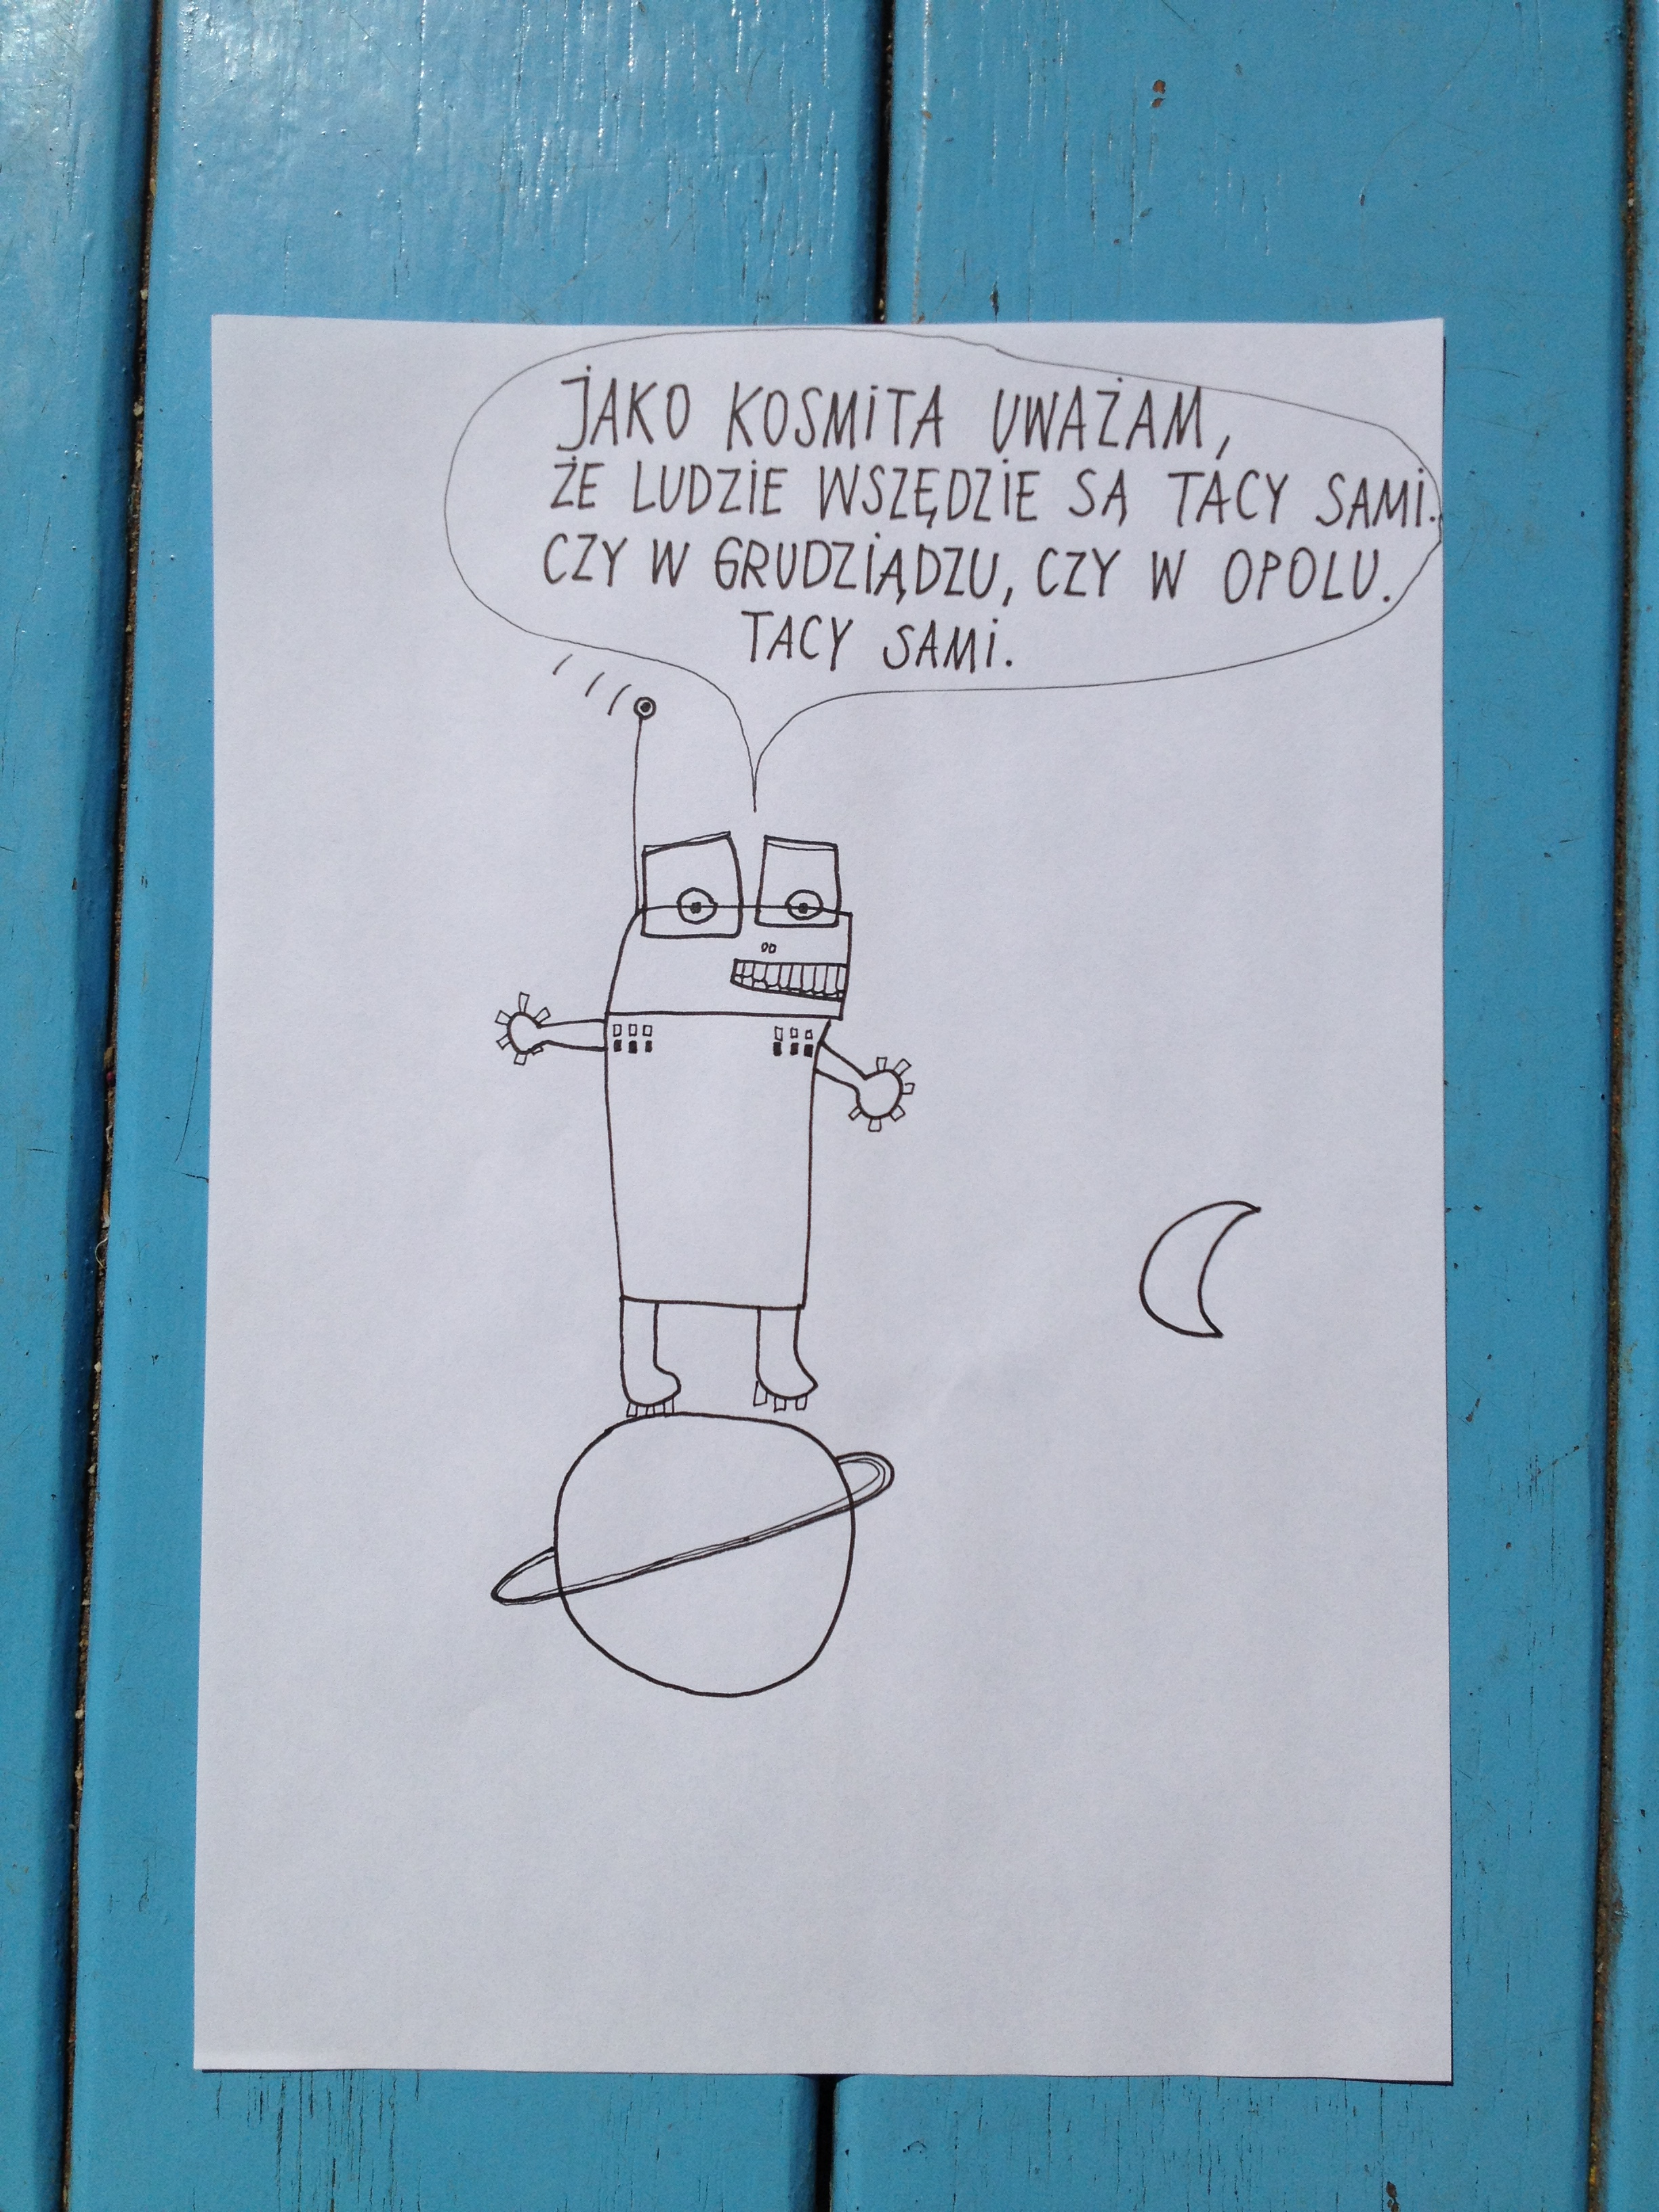 JAKO KOSMITA UWAŻAM,
ŻE LUDZIE WSZĘDZIE SĄ TACY SAMI.
CZY W GRUDZIĄDZU, CZY W OPOLU.
TACY SAMI.